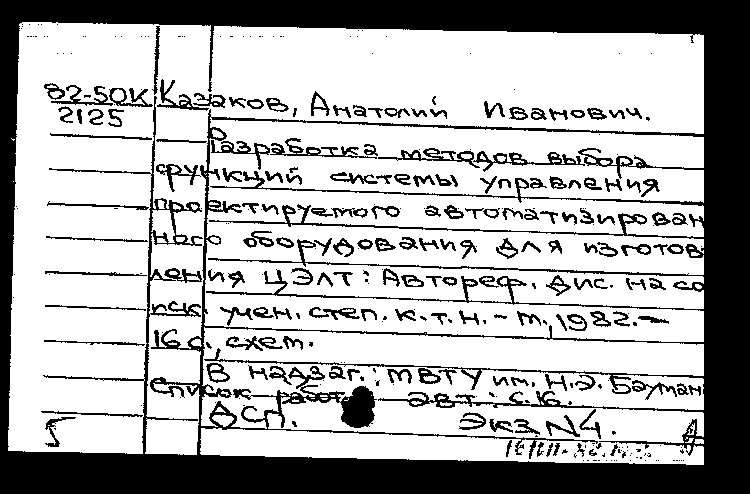 82-50К Казаков, Анатолий Иванович.
2125
Разработка методов выбора
функций системы управления
проектируемого автоматизирован
ного оборудования для изготов
ления ЦЭЛТ: Автореф. дис. на со
иск. учен. степ. к.т.н. - М., 1982. -
16 с., схем.
В надзаг.: МВТУ им. Н.Э. Бауман
Список работ авт.: с. 16.
ДСП. Экз N4.